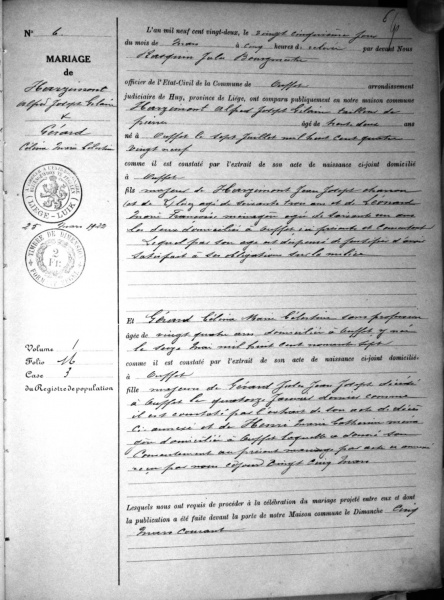 N° 6
MARIAGE
de
Harzimont
Alfred Joseph
&
Gérard
Célina Marie Célestine
LIÉGE - LUIK
25 Mars 1922
TIMBRE DE DIMENSION
2
Volume 1
Folio
Case 3
du Registre de population
L'an mil neuf cent vingt-deux, le vingt cinquième jour
du mois de Mars à cinq heures de par devant Nous
Jules Bourgmestre
officier de l'Etat-Civil de la Commune de Ouffet arrondissement
judiciaire de Huy, province de Liége, ont comparu publiquement en notre maison commune
Harzimont Alfred Joseph tailleur de
pierres âgé de trente deux ans
né à Ouffet le sept Juillet mil huit cent quatre
vingt neuf
comme il est constaté par l'extrait de son acte de naissance ci-joint domicilié
à Ouffet
fils majeur de Harzimont Jean Joseph charron
et de Léonard
Marie Françoise ménagère âgée de soixante un ans
les deux domiciliés à Ouffet ci présents et consentant
Lequel par son age est dispensé de justifier d'avoir
satisfait à ses obligations sur la milice
Et Gérard Célina Marie Célestine sans profession
âgée de vingt quatre ans domiciliée à Ouffet y née
le seize mai mil huit cent nonante sept
comme il est constaté par l'extrait de son acte de naissance ci-joint domiciliée
à Ouffet
fille majeure de Gérard Jules Jean Joseph décédé
à Ouffet le quatorze Janvier dernier comme
il est constaté par l'extrait de son acte de décès
ci-annexé et de Henri Marie Catherine ména
gère domiciliée à Ouffet laquelle a donné son
consentement au présent mariage par acte
reçu par nous vingt cinq Mars
Lesquels nous ont requis de procéder à la célébration du mariage projeté entre eux et dont
la publication a été faite devant la porte de notre Maison commune le Dimanche Cinq
Mars courant